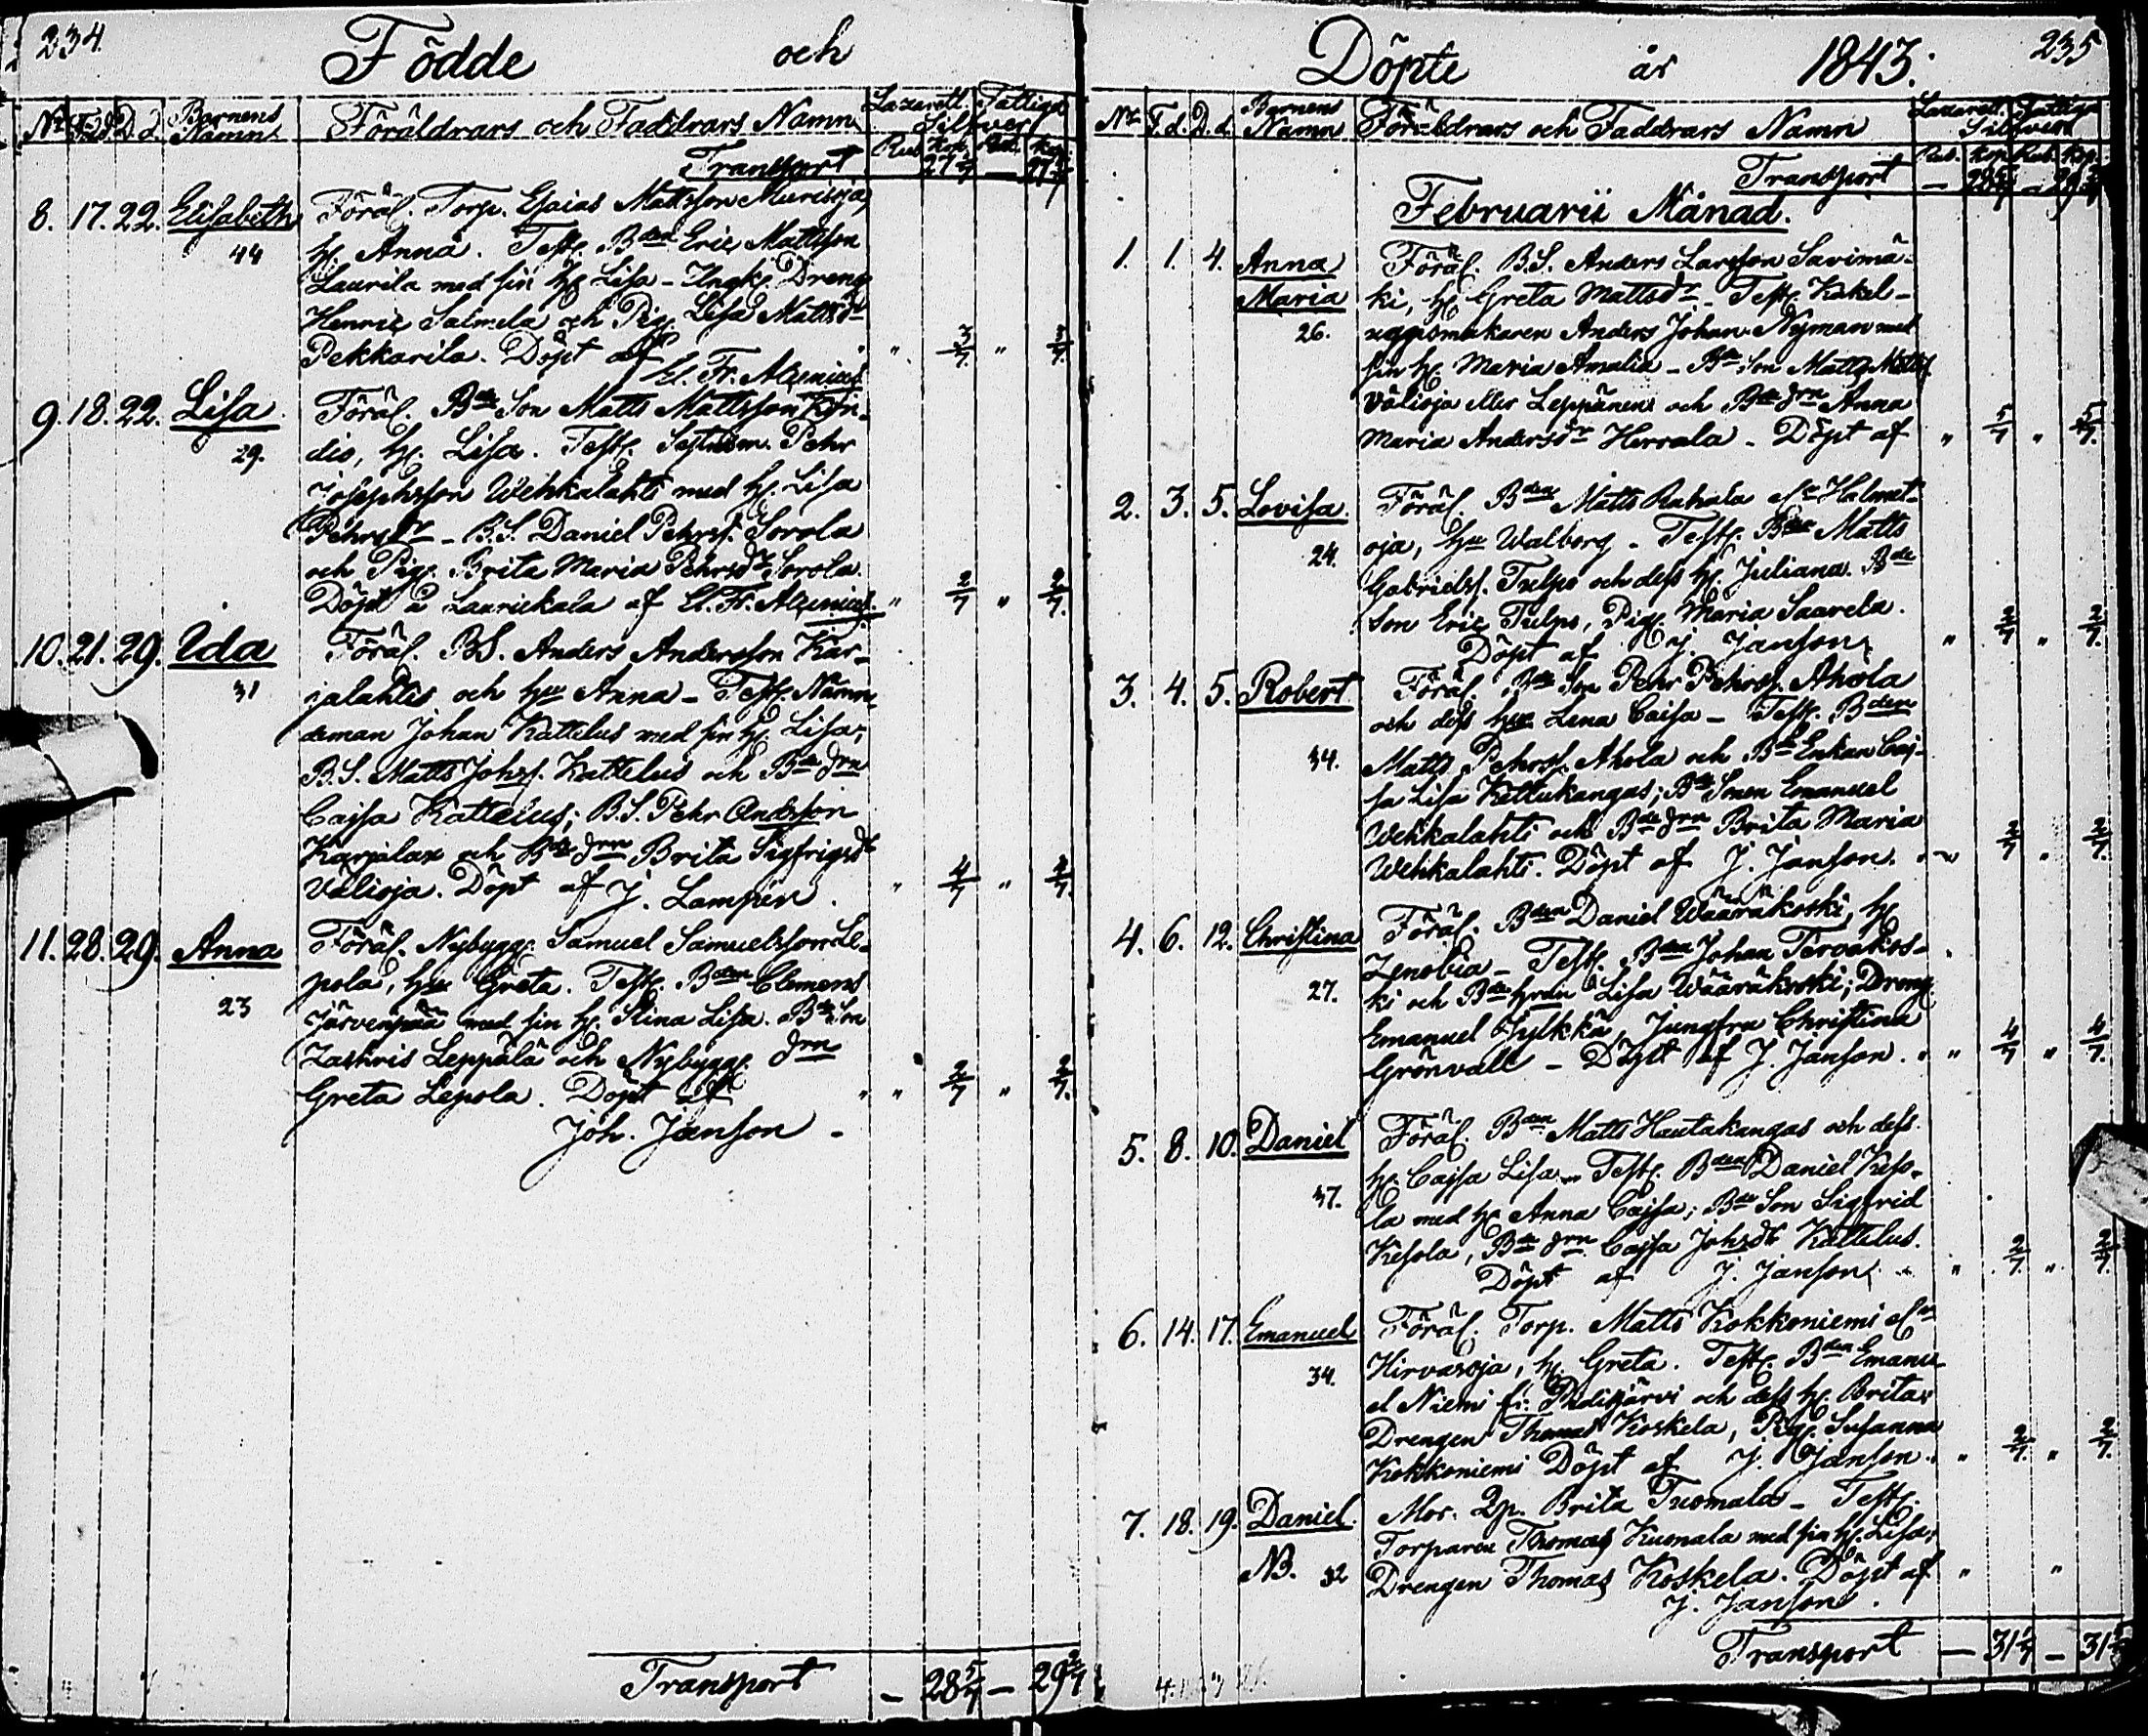 234.
Födde och
Nr F.d. D.d. Barnens Namn Föräldrars och Faddrars Namn Lazarett. Fattiga Silfver
Rub. Kop. Rub. Kop.
Transport 27 27
8. 17. 22. Elisabeth Föräl. Torp. Esaias Mattsson
44 H. Anna. Test. Bden Eric Mattsson
Laurila med sin H. Lisa - Ungk. Dreng
Henric Salmela och Pig. Lisa Mattsdr
Pekkarila. Döpt af " 3/7 " 3/7.
El. Fr. Alcenius
9. 18. 22. Lisa. Föräl. Bde Son Matts Mattsson Kön-
29. dis, H. Lisa. Test. Pehr
Josephsson Wehkalahti med H. Lisa
Pehrsdr - B.S. Daniel Pehrss. Sorola
och Pig. Brita Maria Pehrsdr Sorola.
Döpt à Laurickala af El. Fr. Alcenius. " 2/7 " 2/7.
10. 21. 29. Ida Föräl. BS. Anders Andersson Kar-
31 jalahtis och Hu Anna - Test. Nämn-
deman Johan Kattelus med sin H. Lisa;
B.S. Matts Johss. Kattelus och Bde drn
Cajsa Kattelus; B.S. Pehr Andersson
Karjalax och Bde drn Brita Sigfrigsdr
Välioja. Döpt af J. Lampén. " 4/7 " 4/7.
11. 28. 29. Anna Föräl. Nybygg. Samuel Samuelsson Le-
23 pola, Hu Greta. Test. Bden Clemens
Järvenpää med sin H. Stina Lisa. Bde Son
Zachris Leppälä och Nybygg. drn
Greta Lepola. Döpt af " 2/7 " 2/7.
Joh. Janson -
Transport - 28 5/7 - 29 2/7
Döpte år 1843. 235
Nr F.d. D.d. Barnens Namn Föräldrars och Faddrars Namn Lazarett Fattiga Silfver
Rub. Kop. Rub. Kop.
Transport - 28 5/7 - 29 2/7
Februarii Månad.
1. 1. 4. Anna Föräl. B.S. Anders Larsson Savimä-
Maria ki, H. Greta Mattsdr - Test. Kakel-
26. ugnsmakaren Anders Johan Nyman med
sin H. Maria Amalia - Bde Son Matts Mattss.
Välioja eller Leppänen och Bde drn Anna
Maria Andersdr Herrala - Döpt af " 5/7 " 5/7.
2. 3. 5. Lovisa. Föräl. Bden Matts Rahala el. Halmet-
24. oja, Hu Walborg - Test. Bden Matts
Gabrielss. Tulpo och dess H. Juliana. Bde
Son Eric Tulpo, Pig. Maria Saarela.
Döpt af J. Janson " 2/7 " 2/7.
3. 4. 5. Robert Föräl. Bde Son Pehr Pehrss. Ahola
och dess Hu Lena Caisa - Test. Bden
34. Matts Pehrss. Ahola och Bde Enkan Caj-
sa Lisa Kettukangas; Bde Sonen Emanuel
Wehkalahti och Bde drn Brita Maria
Wehkalahti. Döpt af J. Janson. " 2/7 " 2/7.
4. 6. 12. Christina Föräl. Bden Daniel Wääräkoski, H.
Zenobia - Test. Bden Johan Tervakos-
27. ki och Bde Hrun Lisa Wääräkoski; Dreng
Emanuel Jylkkä, Jungfru Christina
Grönvall - Döpt af J. Janson. " 4/7 " 4/7.
5. 8. 10. Daniel Föräl. Bden Matts Hautakangas och dess
H. Cajsa Lisa - Test. Bden Daniel Keso-
37. la med H. Anna Cajsa; Bde Son Sigfrid
Kesola, Bde drn Cajsa Johsdr Kattelus.
Döpt af J. Janson. " 2/7. " 2/7.
6. 14. 17. Emanuel Föräl. Torp. Matts Kokkoniemi el.
34. Hirvasoja, H. Greta. Test. Bden Emanu-
el Niemi fr. och dess H. Brita;
Drengen Thomas Koskela, Pig. Susanna
Kokkoniemi Döpt af J. Janson. " 2/7. " 2/7.
7. 18. 19. Daniel. Mor. Qp. Brita Tuomala - Test.
Torparen Thomas Kuonala med sin H. Lisa;
NB. 32 Drengen Thomas Koskela. Döpt af " "
J. Janson.
Transport - 31 - 31